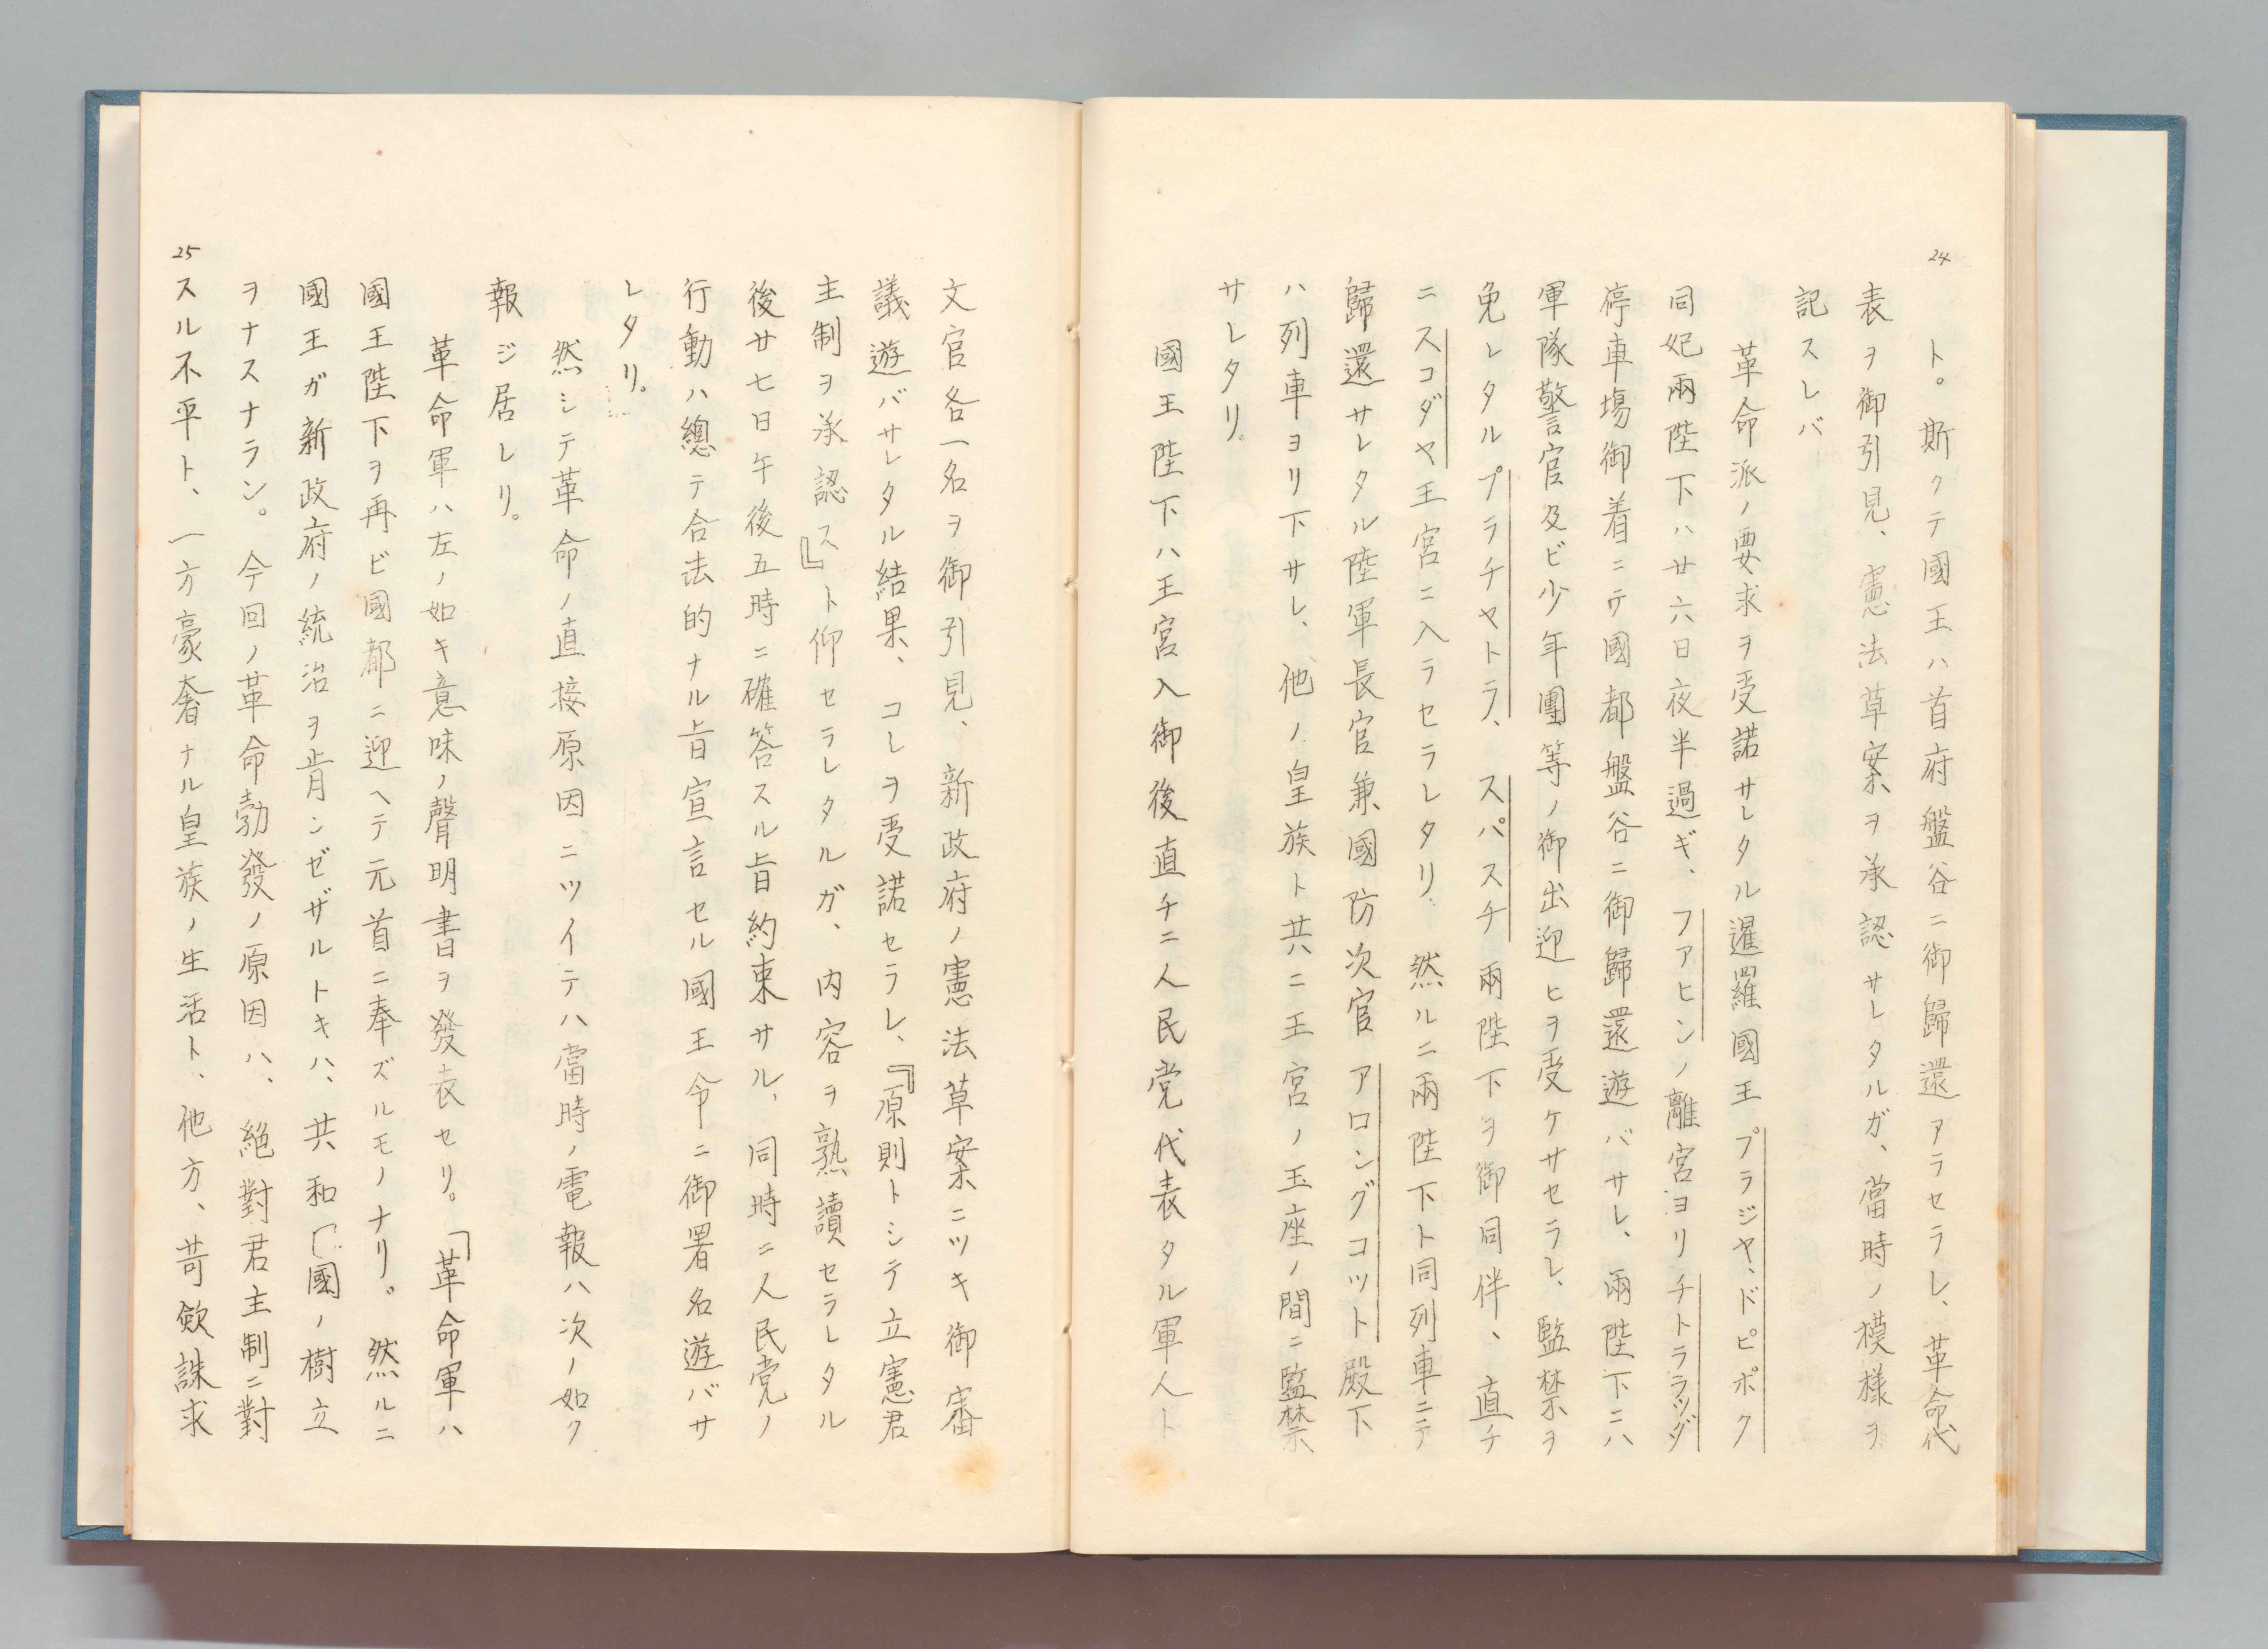 24
ト。斯クテ國王ハ首府盤谷ニ御歸還アラセラレ、革命代
表ヲ御引見、憲法草案ヲ承認サレタルガ、當時ノ模様ヲ
記スレバ
革命派ノ要求ヲ受諾サレタル暹羅國王プラジャ、ドピポク
同妃兩陛下ハ廿六日夜半過ギ、フアヒンノ離宮ヨリチトラッダ
停車場御着ニテ國都盤谷ニ御歸還遊バサレ、兩陛下ニハ
軍隊警官及ビ少年團等ノ御出迎ヒヲ受ケサセラレ、監禁ヲ
免レタルプラチヤトラ、スパスチ兩陛下ヲ御同伴、直チ
ニスコダヤ王宮ニ入ラセラレタリ。然ルニ兩陛下ト同列車ニテ
歸還サレタル陸軍長官兼國防次官アロングコット殿下
ハ列車ヨリ下サレ、他ノ皇族ト共ニ王宮ノ玉座ノ間ニ監禁
サレタリ。
國王陛下ハ王宮入御後直チニ人民党代表タル軍人ト
文官各一名ヲ御引見、新政府ノ憲法草案ニツキ御審
議遊バサレタル結果、コレヲ受諾セラレ、『原則トシテ立憲君
主制ヲ承認ス』ト仰セラレタルガ、内容ヲ熟讀セラレタル
後廿七日午後五時ニ確答スル旨約束サル、同時ニ人民党ノ
行動ハ總テ合法的ナル旨宣言セル國王令ニ御署名遊バサ
レタリ。
然シテ革命ノ直接原因ニツイテハ當時ノ電報ハ次ノ如ク
報ジ居レリ。
革命軍ハ左ノ如キ意味ノ聲明書ヲ發表セリ。「革命軍ハ
國王陛下ヲ再ビ國都ニ迎ヘテ元首ニ奉ズルモノナリ。然ルニ
國王ガ新政府ノ統治ヲ肯ンゼザルトキハ、共和國ノ樹立
ヲナスナラン。今回ノ革命勃發ノ原因ハ、絶對君主制ニ對
スル不平ト、一方豪奢ナル皇族ノ生活ト、他方、苛斂誅求
25